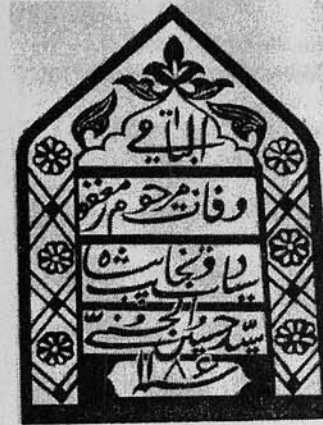 الباقی
وفات مرحوم مغفور
سیادت و نجابت پناه
سیّد حسین
سنه